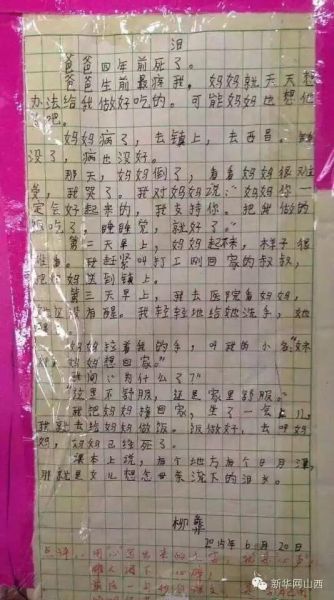 泪
爸爸四年前死了。
爸爸生前最疼我，妈妈就天天想
办法给我做好吃的。可能妈妈也想他
了吧。
妈妈病了，去镇上，去西昌。钱
没了，病也没好。
那天，妈妈倒了，看看妈妈很难
受，我哭了。我对妈妈说：“妈妈，你一
定会好起来的，我支持你。把我做的
饭吃了，睡睡觉，就好了。”
第二天早上，妈妈起不来，样子很
难看。我赶紧叫打工刚回家的叔叔，
把妈妈送到镇上。
第三天早上，我去医院看妈妈，
她还没有醒。我轻轻地给她洗手，她
醒了。
妈妈拉着我的手，叫我的小名：“妹
妹，妈妈想回家。”
我问：“为什么了？”
“这里不舒服，还是家里舒服。”
我把妈妈接回家，坐了一会儿，
我就去给妈妈做饭。饭做好，去叫妈
妈，妈妈已经死了。
课本上说，有个地方有个日月潭，
那就是女儿想念母亲流下的泪水。
柳彝
2015年6月20日
新华网山西